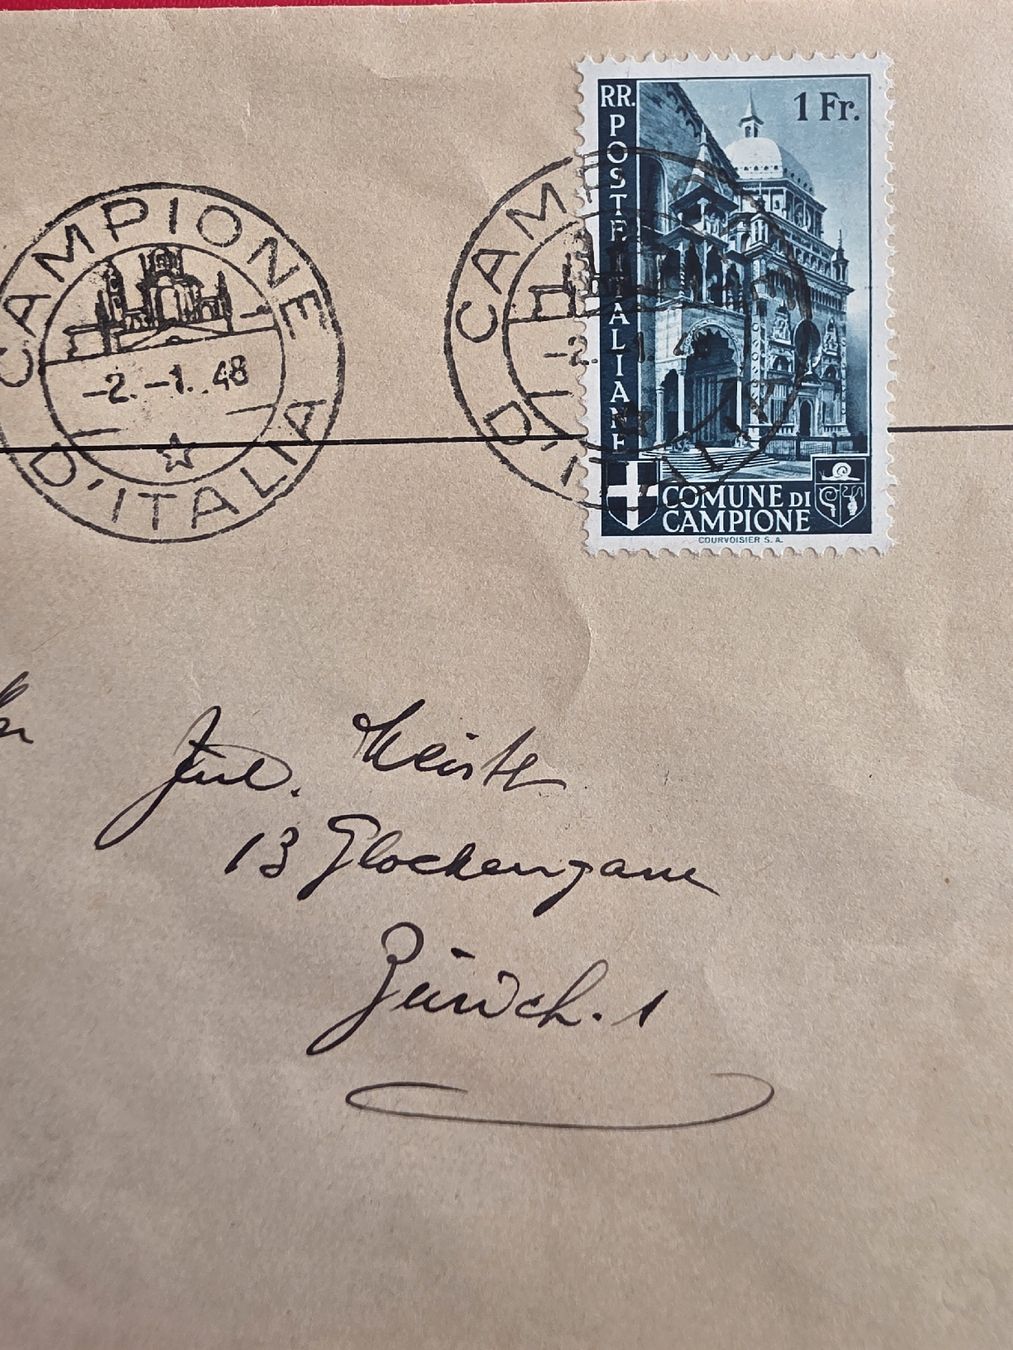 CAMPIONE D'ITALIA
-2.-1..48
CAMPIONE D'ITALIA
-2.-1.48
RR. POSTE ITALIANE
1 Fr.
COMUNE DI
CAMPIONE
COURVOISIER S. A.
Meister
13 Glockengasse
Zürich. 1